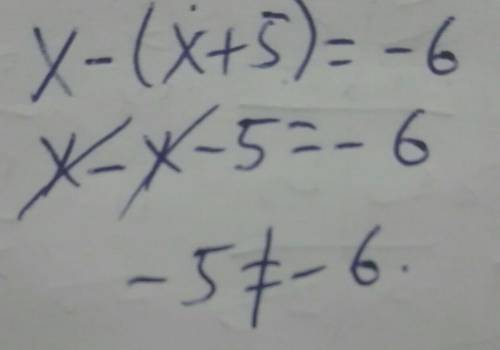 x-(x+5)=-6
x-x-5=-6
-5≠-6.